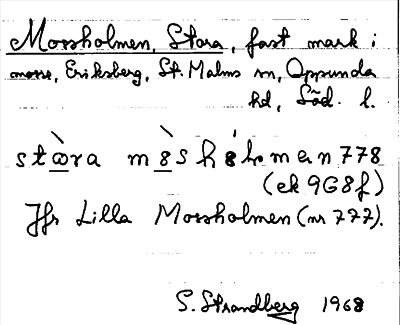 Mossholmen, Stora, fast mark i
mosse, Eriksberg, St. Malms sn, Oppunda
hd, Söd. l.
778
(ek 9G8f)
Jfr Lilla Mossholmen (nr 777).
S. Strandberg 1968